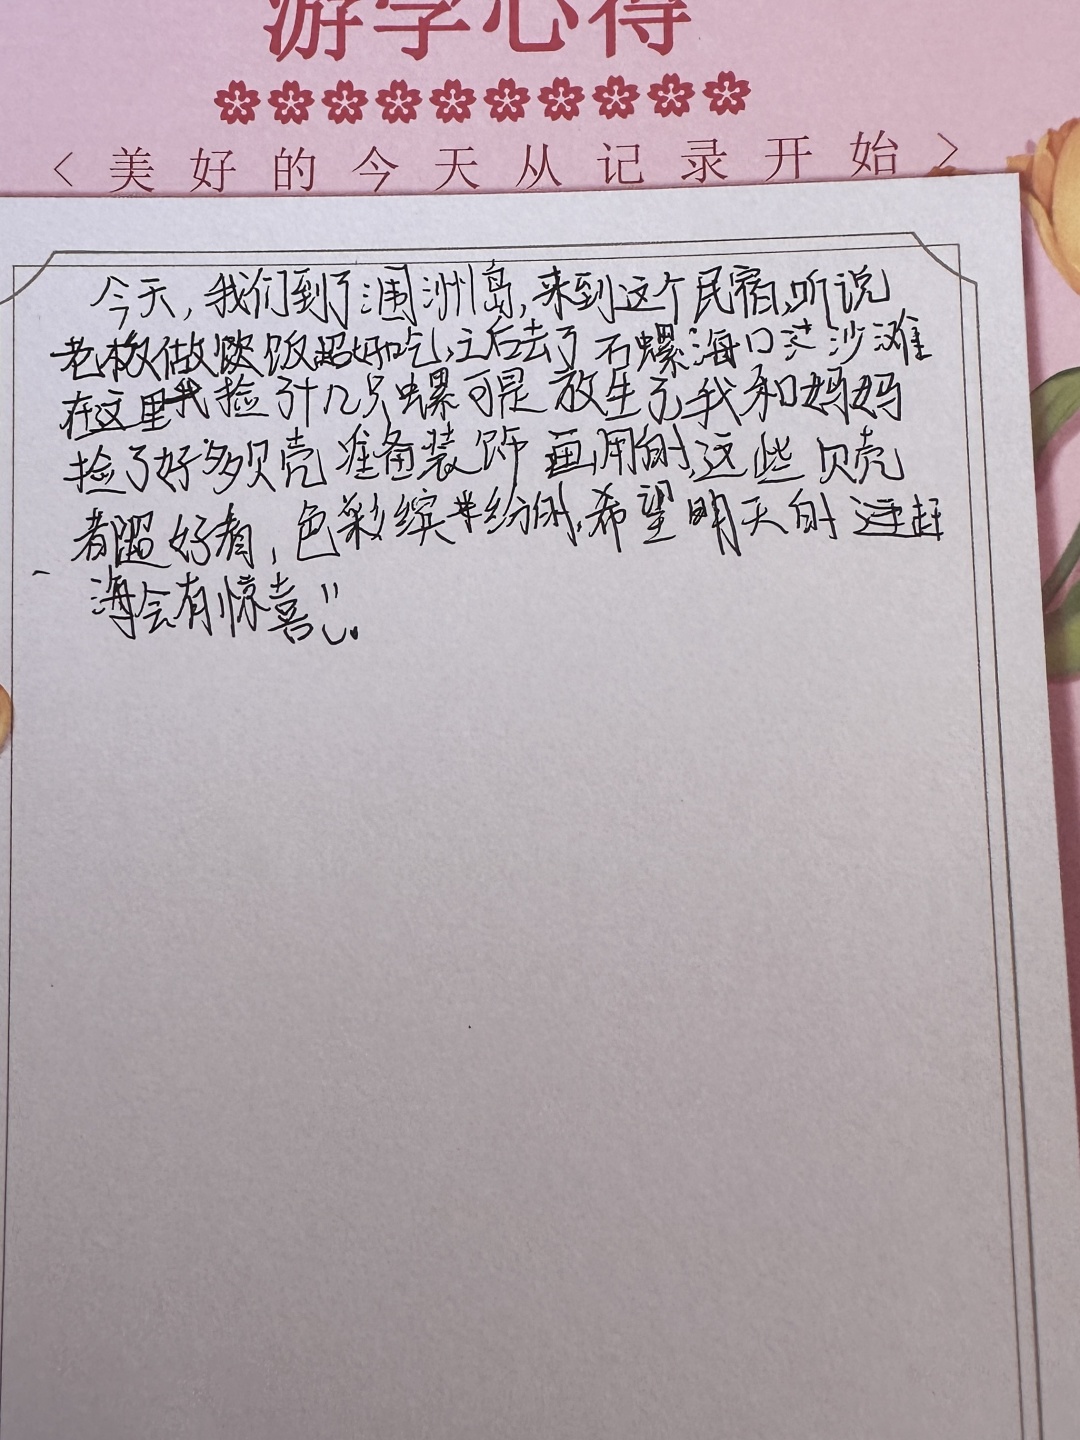 游学心得
<美好的今天从记录开始>
今天,我们到了涠洲岛,来到这个民宿,听说
老板做饭超好吃,之后去了石螺海口沙滩
在这里我捡了十几只螺可是放生了,我和妈妈
捡了好多贝壳准备装饰画用的,这些贝壳
都超好看,色彩缤纷的,希望明天的赶
海会有惊喜